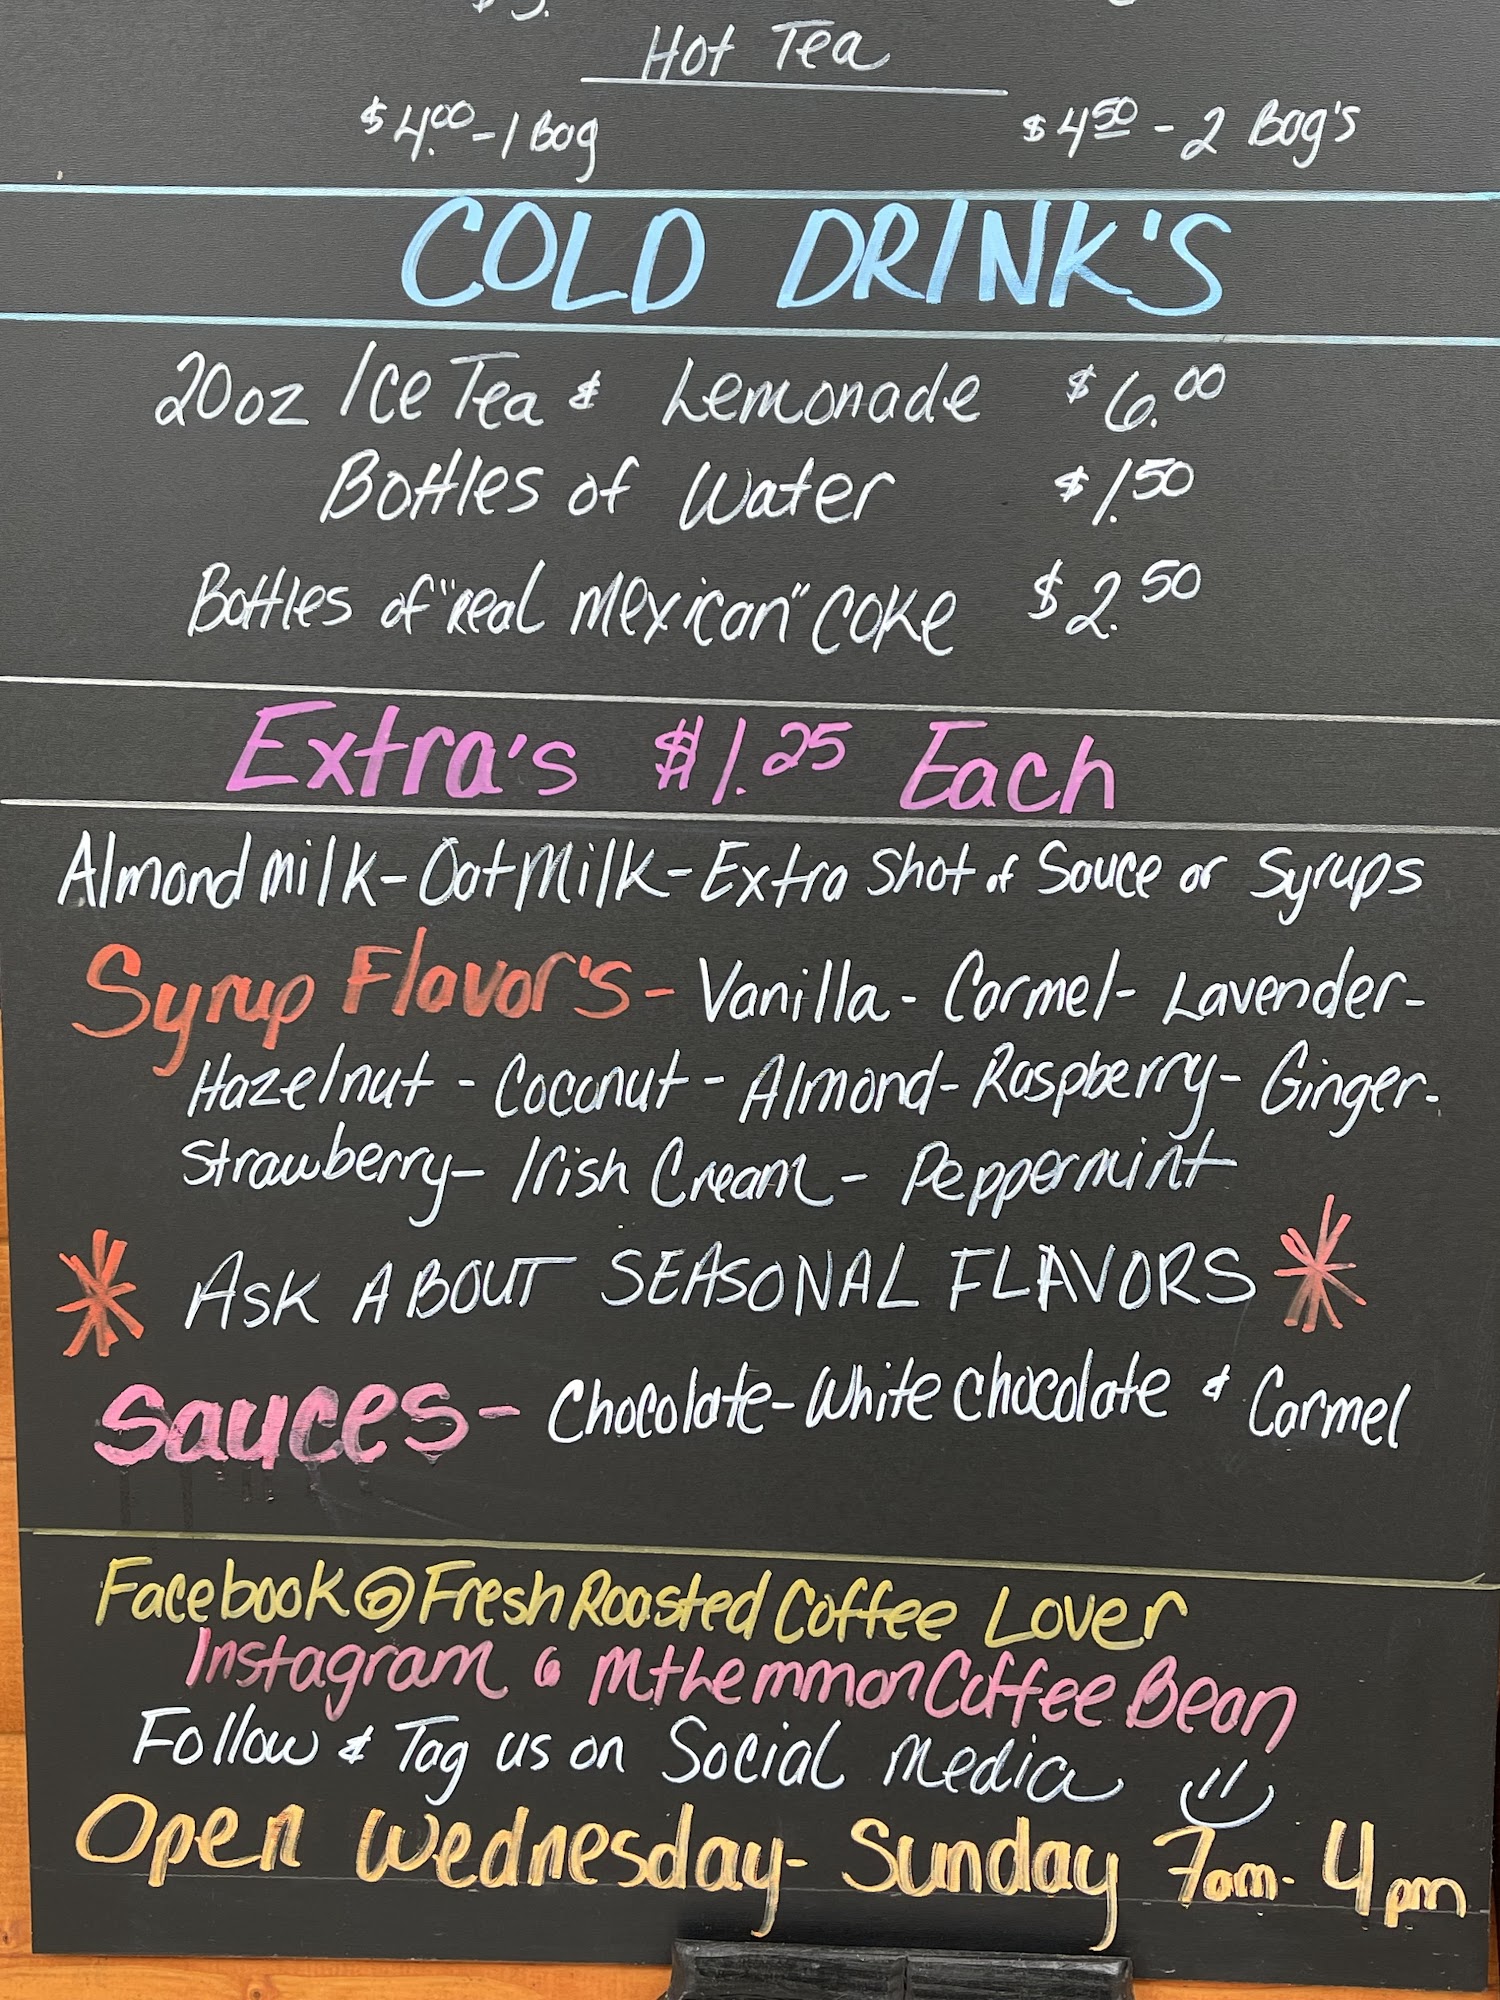 Hot Tea
$4.00 - 1 Bag $4.50 - 2 Bag's
COLD DRINK'S
20oz Ice Tea & Lemonade $6.00
Bottles of Water $1.50
Bottles of "real Mexican" Coke $2.50
Extra's $1.25 Each
Almond Milk - Oat Milk - Extra Shot of Sauce or Syrups
Syrup Flavor's - Vanilla - Carmel - Lavender -
Hazelnut - Coconut - Almond - Raspberry - Ginger -
Strawberry - Irish Cream - Peppermint
* ASK ABOUT SEASONAL FLAVORS *
Sauces - Chocolate - White Chocolate & Carmel
Facebook @ Fresh Roasted Coffee Lover
Instagram @ MtLemmonCoffeeBean
Follow & Tag us on Social Media
Open Wednesday - Sunday 7am - 4pm